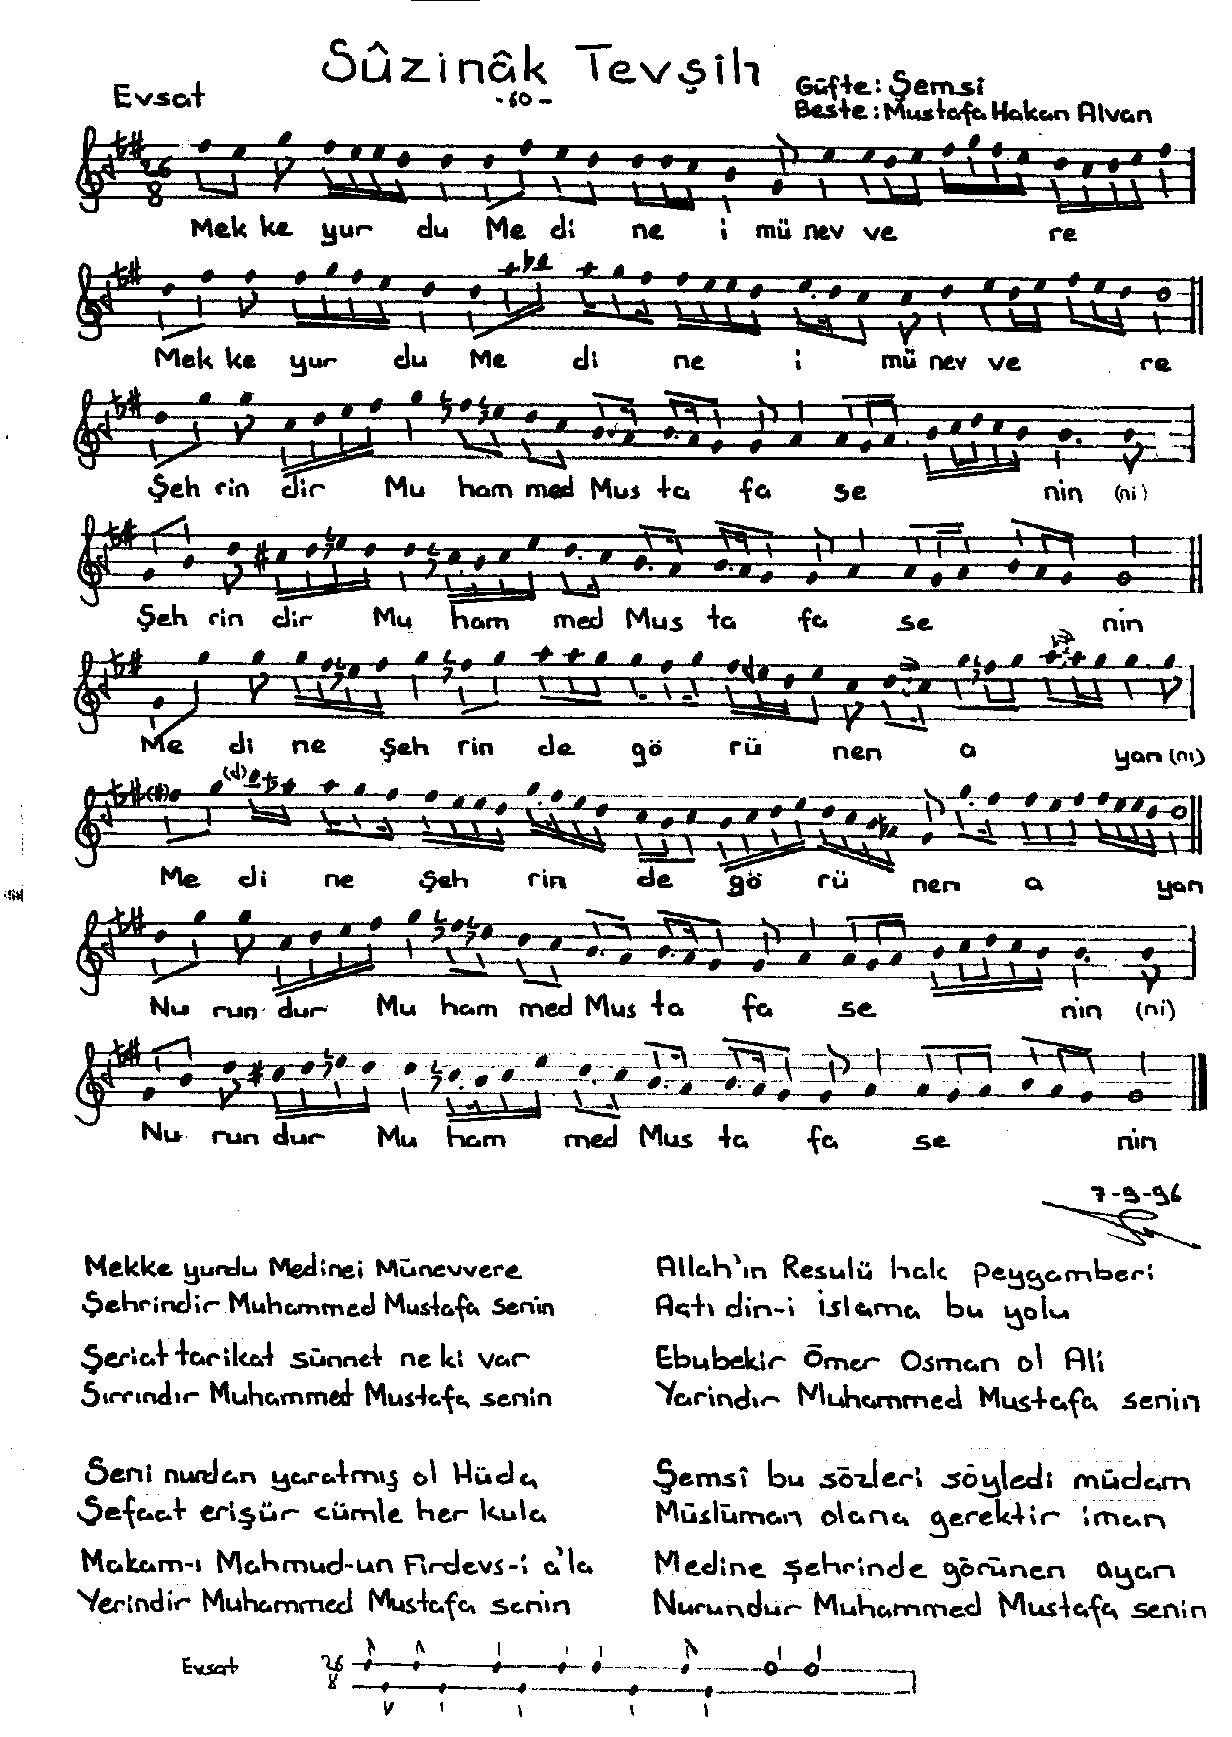 Sûzinâk Tevşih
Evsat
-60-
Güfte: Şemsî
Beste: Mustafa Hakan Alvan
26
8
Mek ke yur du Me di ne i mü nev ve re
Mek ke yur du Me di ne i mü nev ve re
Şeh rin dir Mu ham med Mus ta fa se nin (ni)
Şeh rin dir Mu ham med Mus ta fa se nin
Me di ne şeh rin de gö rü nen a yan (nı)
Me di ne şeh rin de gö rü nen a yan
Nu run dur Mu ham med Mus ta fa se nin (ni)
Nu run dur Mu ham med Mus ta fa se nin
7-9-96
Mekke yurdu Medinei Münevvere
Şehrindir Muhammed Mustafa senin
Şeriat tarikat sünnet ne ki var
Sırrındır Muhammed Mustafa senin
Seni nurdan yaratmış ol Hüda
Şefaat erişür cümle her kula
Makam-ı Mahmud-un Firdevs-i a'la
Yerindir Muhammed Mustafa senin
Allah'ın Resulü hak peygamberi
Açtı din-i islama bu yolu
Ebubekir Ömer Osman ol Ali
Yarindır Muhammed Mustafa senin
Şemsî bu sözleri söyledi müdam
Müslüman olana gerektir iman
Medine şehrinde görünen ayan
Nurundur Muhammed Mustafa senin
Evsat
26
8